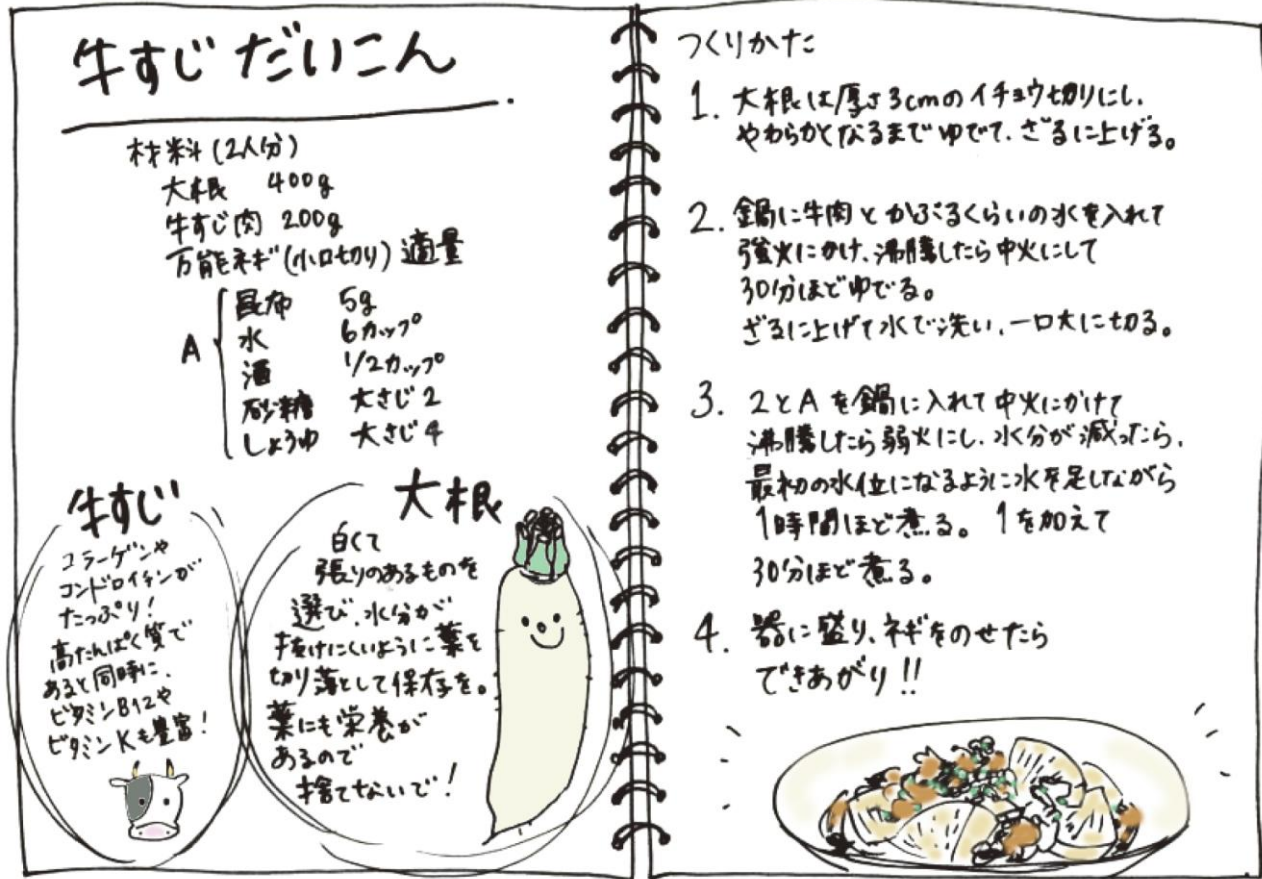 牛すじだいこん
材料(2人分)
大根 400g
牛すじ肉 200g
万能ネギ(小口切り) 適量
A
昆布 5g
水 6カップ
酒 1/2カップ
砂糖 大さじ2
しょうゆ 大さじ4
牛すじ
コラーゲンや
コンドロイチンが
たっぷり!
高たんぱく質で
あると同時に、
ビタミンB12や
ビタミンKも豊富!
大根
白くて
張りのあるものを
選び、水分が
抜けにくいように葉を
切り落として保存を。
葉にも栄養が
あるので
捨てないで!
つくりかた
1. 大根は厚さ3cmのイチョウ切りにし、
やわらかくなるまでゆでて、ざるに上げる。
2. 鍋に牛肉とかぶるくらいの水を入れて
強火にかけ、沸騰したら中火にして
30分ほどゆでる。
ざるに上げて水で洗い、一口大に切る。
3. 2とAを鍋に入れて中火にかけて
沸騰したら弱火にし、水分が減ったら、
最初の水位になるように水を足しながら
1時間ほど煮る。 1を加えて
30分ほど煮る。
4. 器に盛り、ネギをのせたら
できあがり!!